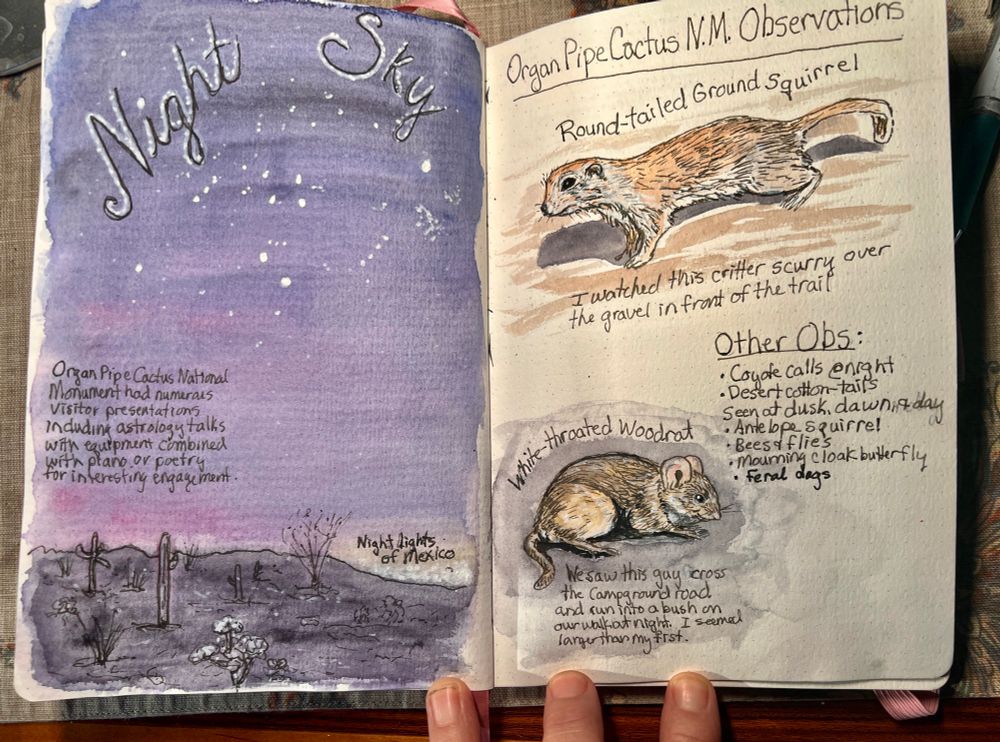 Night Sky
Organ Pipe Cactus National
Monument had numerous
Visitor presentations
including astrology talks
with equipment combined
with piano or poetry
for interesting engagement.
Night lights
of Mexico
Organ Pipe Cactus N.M. Observations
Round-tailed Ground Squirrel
I watched this critter scurry over
the gravel in front of the trail
Other Obs:
• Coyote calls @ night
• Desert cotton-tails
Seen at dusk, dawn, & day
• Antelope squirrel
• Bees & flies
• Mourning cloak butterfly
• Feral dogs
White-throated Woodrat
We saw this guy cross
the Campground road
and run into a bush on
our walk at night. I seemed
larger than my fist.